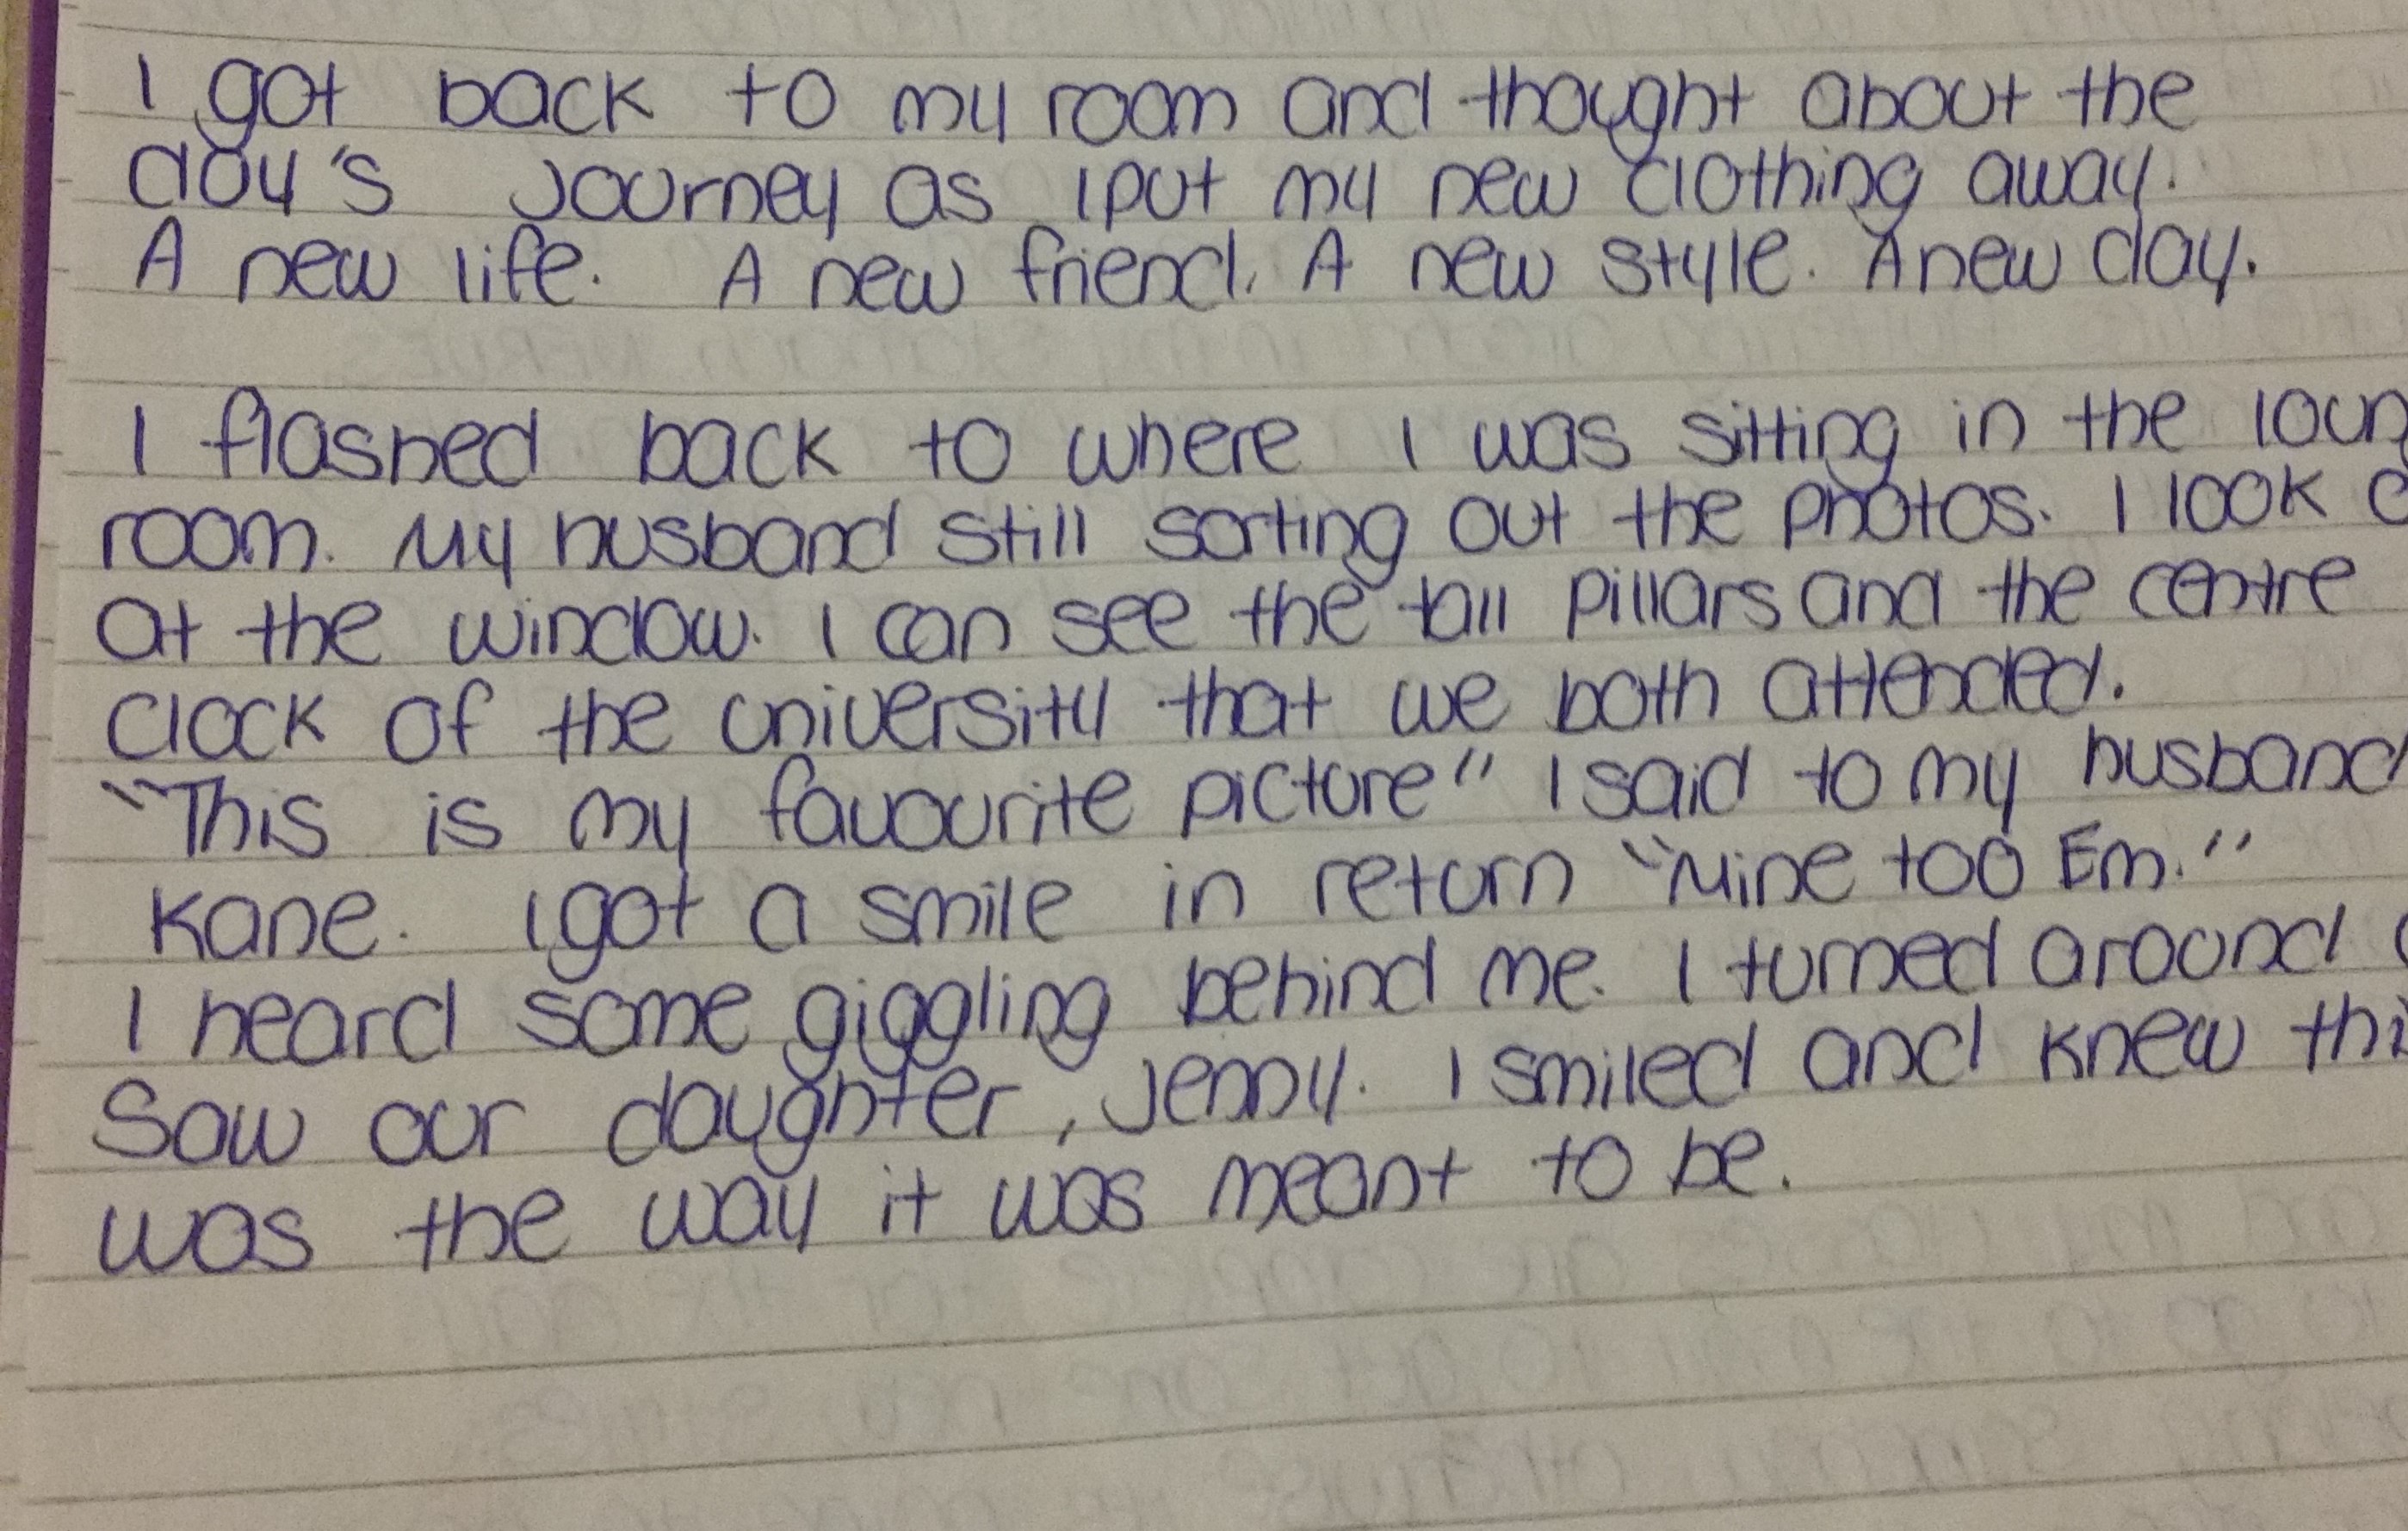 I got back to my room and thought about the
day's journey as I put my new clothing away.
A new life. A new friend. A new style. A new day.
I flashed back to where I was sitting in the
room. My husband still sorting out the photos. I look
at the window. I can see the tall pillars and the centre
clock of the university that we both attended.
"This is my favourite picture" I said to my husband
Kane. I got a smile in return "Mine too Em."
I heard some giggling behind me. I turned around
Saw our daughter, Jenny. I smiled and knew
was the way it was meant to be.